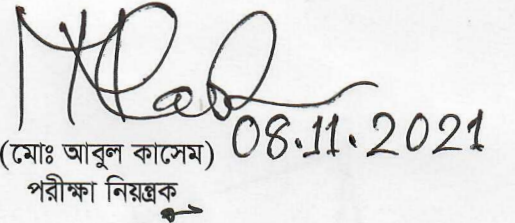 08.11.2021
(মোঃ আবুল কাসেম)
পরীক্ষা নিয়ন্ত্রক